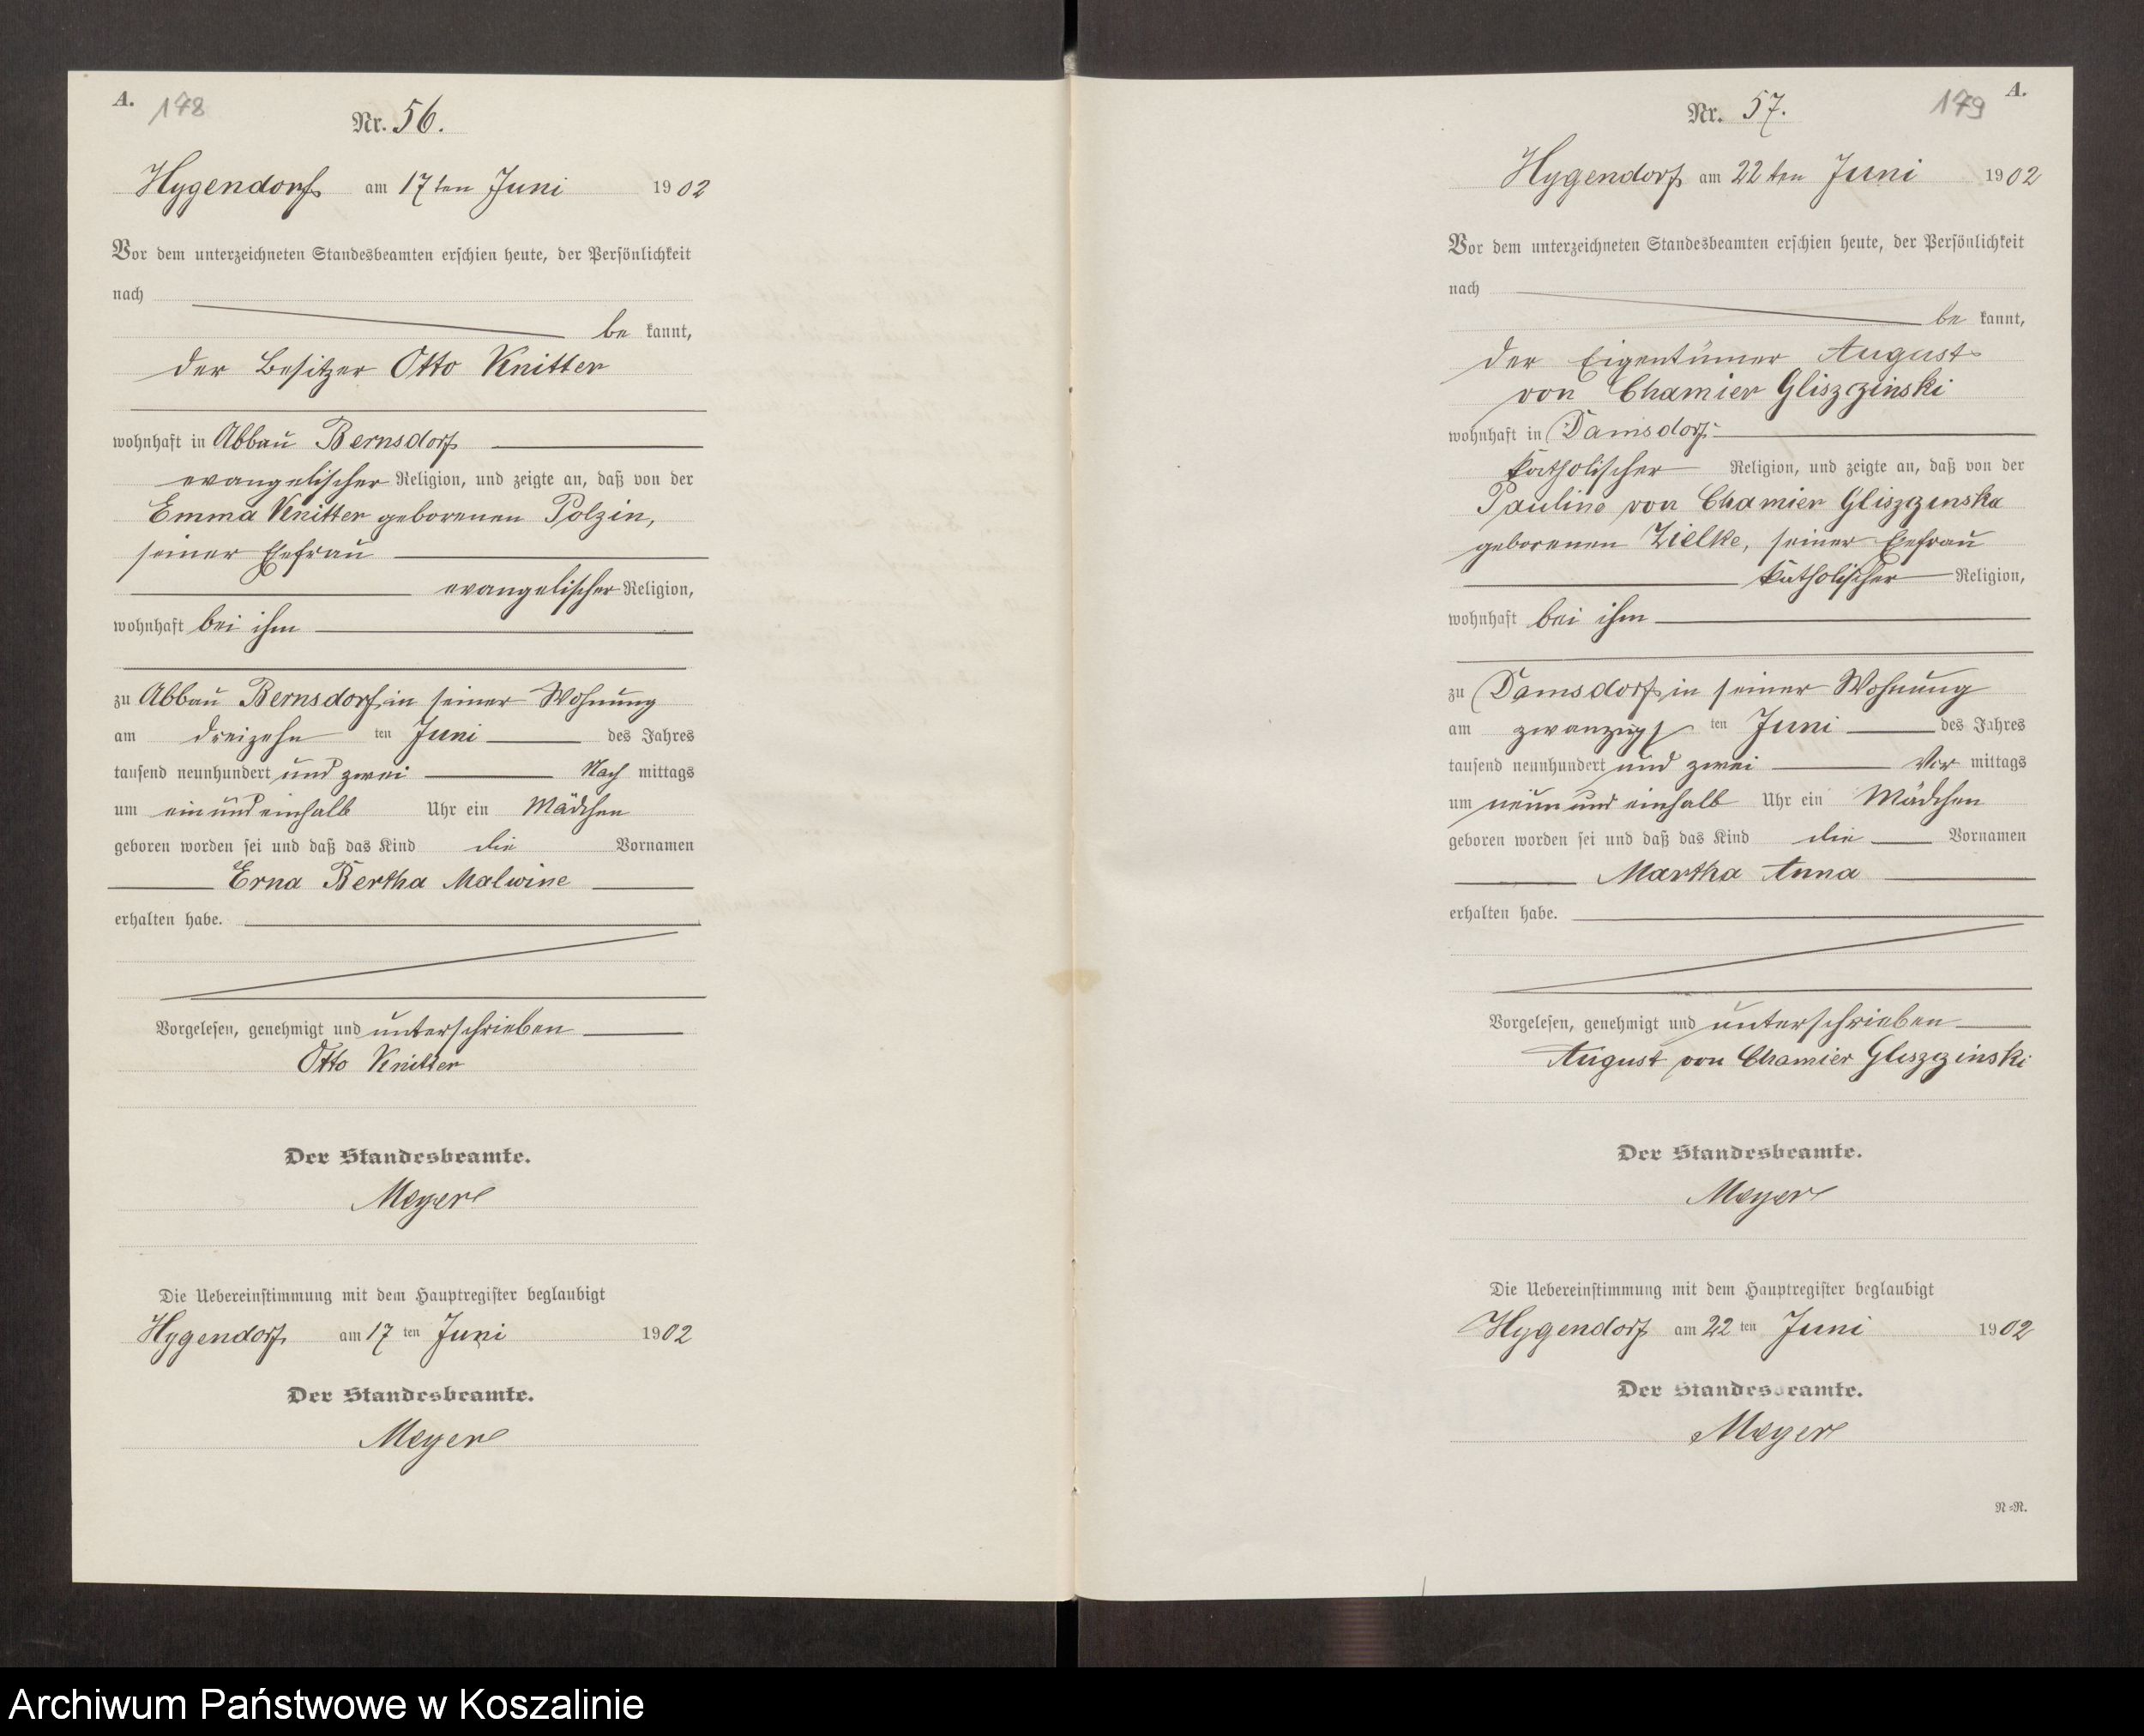 A. 178
Nr. 56.
Hygendorf am 17ten Juni 1902
Vor dem unterzeichneten Standesbeamten erschien heute, der Persönlichkeit
nach
be kannt,
der Besitzer Otto Knitter
wohnhaft in Abbau Bernsdorf
evangelischer Religion, und zeigte an, daß von der
Emma Knitter geborenen Polzin,
seiner Ehefrau
evangelischer Religion,
wohnhaft bei ihm
zu Abbau Bernsdorf, in seiner Wohnung
am dreizehn ten Juni des Jahres
tausend neunhundert und zwei Nach mittags
um ein und einhalb Uhr ein Mädchen
geboren worden sei und daß das Kind die Vornamen
Erna Bertha Malwine
erhalten habe.
Vorgelesen, genehmigt und unterschrieben
Otto Knitter
Der Standesbeamte.
Meyer
Die Uebereinstimmung mit dem Hauptregister beglaubigt
Hygendorf, am 17 ten Juni 1902
Der Standesbeamte.
Meyer
179 A.
Nr. 57.
Hygendorf am 22ten Juni 1902
Vor dem unterzeichneten Standesbeamten erschien heute, der Persönlichkeit
nach
be kannt,
der Eigentümer August
von Chamier Gliszczinski
wohnhaft in Damsdorf
katholischer Religion, und zeigte an, daß von der
Pauline von Chamier Gliszczinska
geborenen Zielke, seiner Ehefrau
katholischer Religion,
wohnhaft bei ihm
zu Damsdorf, in seiner Wohnung
am zwanzigs ten Juni des Jahres
tausend neunhundert und zwei Vor mittags
um neun und einhalb Uhr ein Mädchen
geboren worden sei und daß das Kind die Vornamen
Martha Anna
erhalten habe.
Vorgelesen, genehmigt und unterschrieben
August von Chamier Gliszczinski
Der Standesbeamte.
Meyer
Die Uebereinstimmung mit dem Hauptregister beglaubigt
Hygendorf am 22 ten Juni 1902
Der Standesbeamte.
Meyer
N-R.
Archiwum Państwowe w Koszalinie